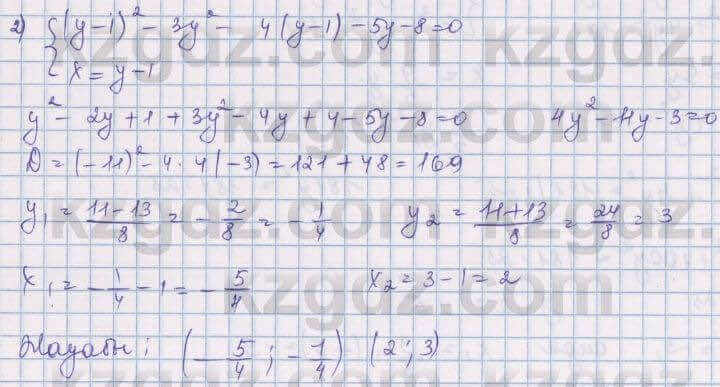 2) { (y-1)² - 3y² - 4(y-1) - 5y - 8 = 0
x = y - 1
y² - 2y + 1 + 3y² - 4y + 4 - 5y - 8 = 0 4y² - 11y - 3 = 0
D = (-11)² - 4 · 4(-3) = 121 + 48 = 169
y₁ = \frac{11-13}{8} = -\frac{2}{8} = -\frac{1}{4} y₂ = \frac{11+13}{8} = \frac{24}{8} = 3
x₁ = -\frac{1}{4} - 1 = -\frac{5}{4} x₂ = 3 - 1 = 2
Жауабы: (-\frac{5}{4}; -\frac{1}{4}) (2; 3)
kzgdz.com